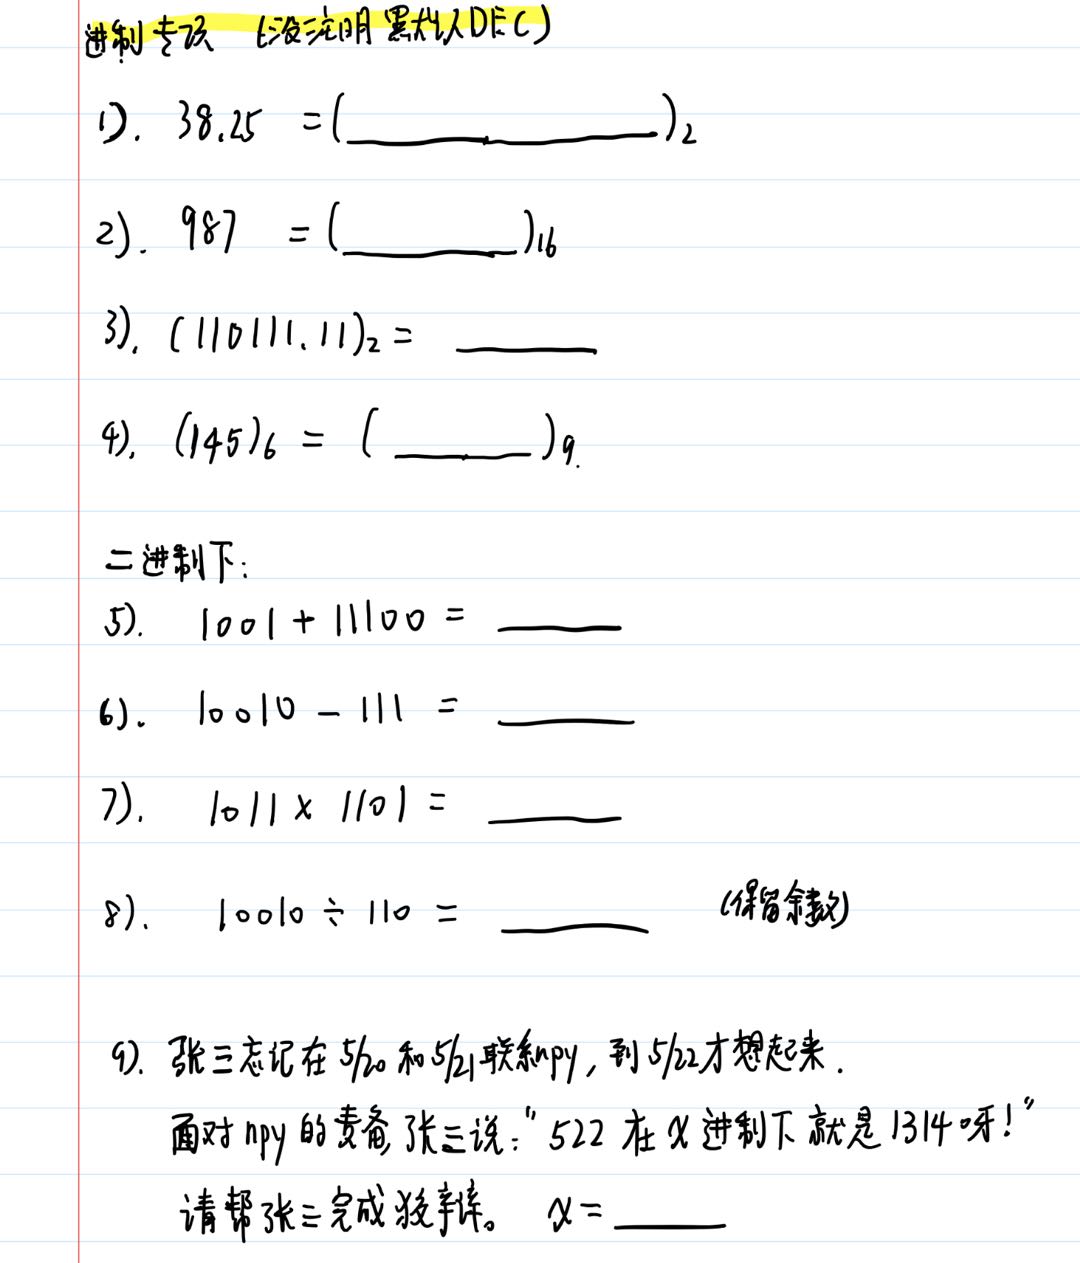 进制专项 (没注明默认DEC)
1). 38.25 = (__________)₂
2). 987 = (______)₁₆
3). (110111.11)₂ = _____
4). (145)₆ = (_____)₉.
二进制下:
5). 1001 + 11100 = _____
6). 10010 - 111 = _____
7). 1011 × 1101 = _____
8). 10010 ÷ 110 = _____ (保留余数)
9). 张三忘记在5/20和5/21联系npy, 到5/22才想起来.
面对npy的责备, 张三说:"522在x进制下就是1314呀!"
请帮张三完成狡辩。 x = _____